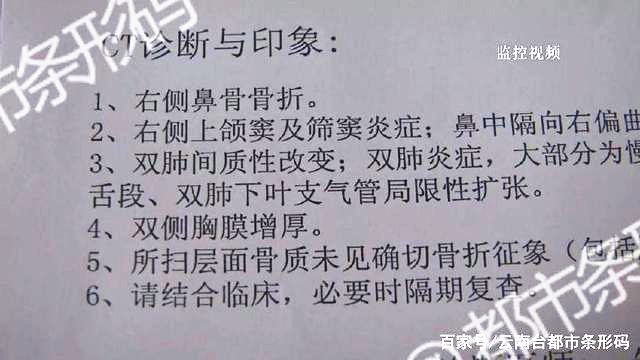 CT诊断与印象:
监控视频
1、右侧鼻骨骨折。
2、右侧上颌窦及筛窦炎症；鼻中隔向右偏曲
3、双肺间质性改变；双肺炎症，大部分为慢
舌段、双肺下叶支气管局限性扩张。
4、双侧胸膜增厚。
5、所扫层面骨质未见确切骨折征象（包括
6、请结合临床，必要时隔期复查。
都市条形码
都市条形码
百家号/云南台都市条形码